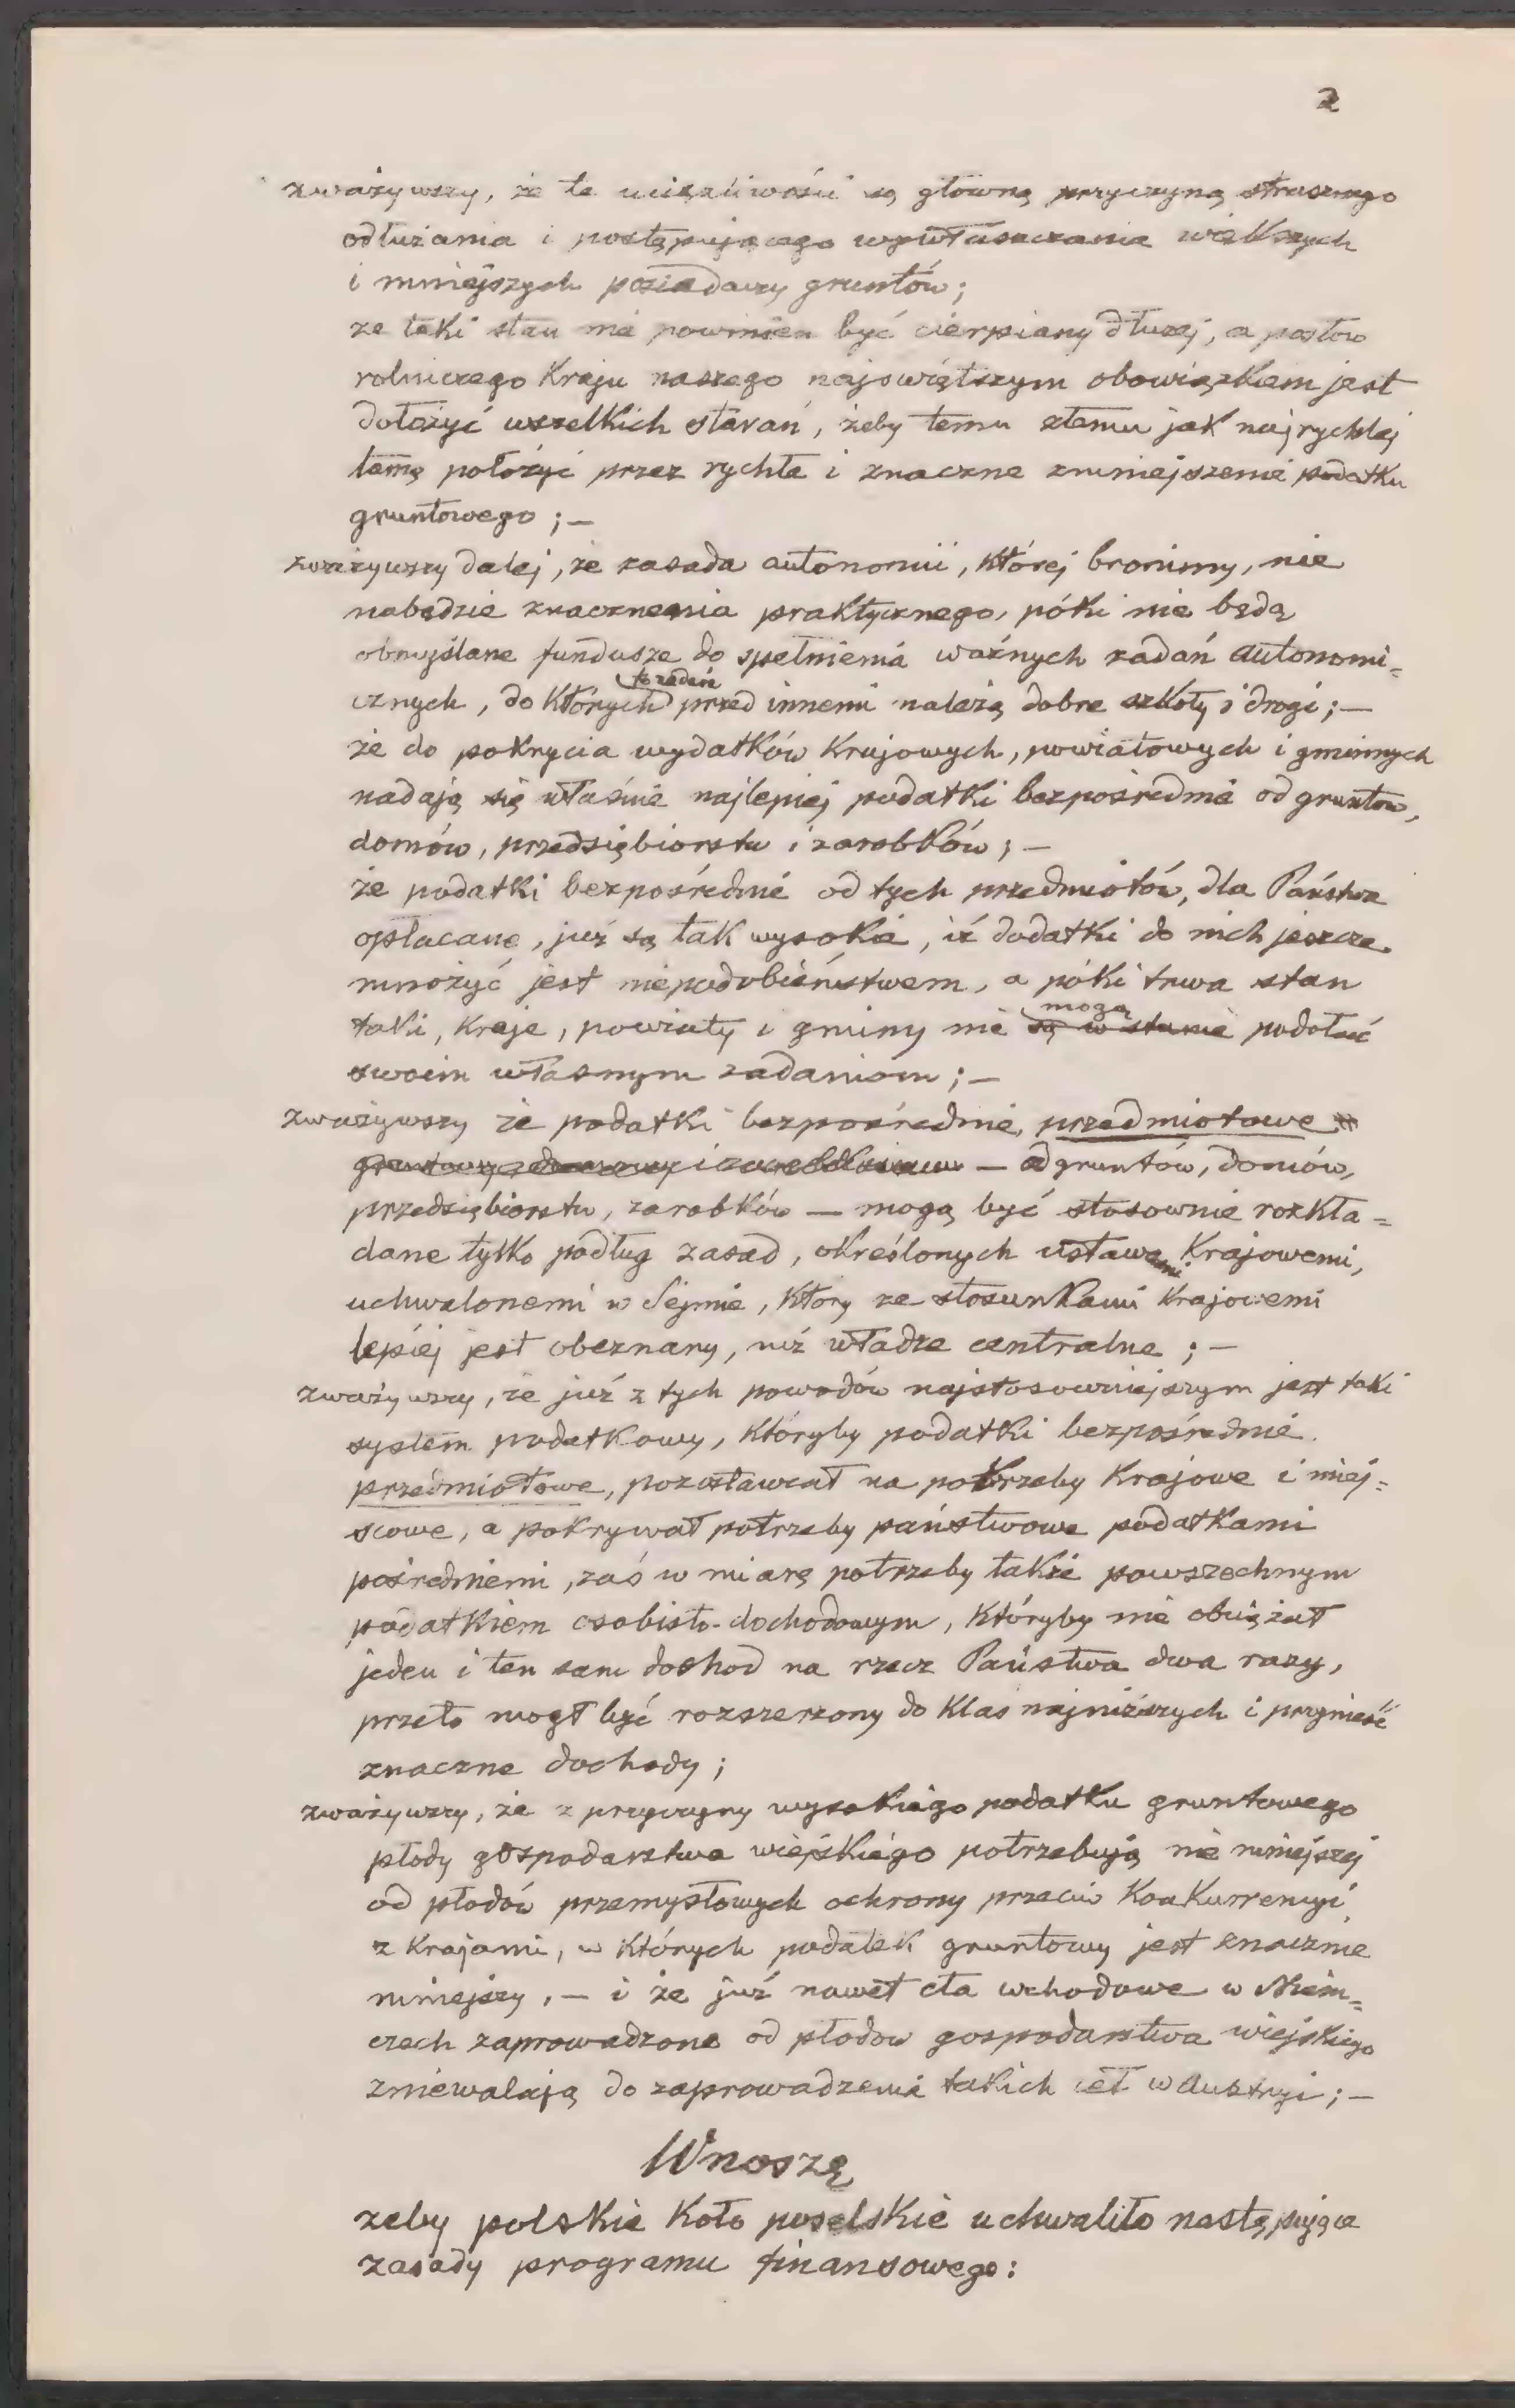 2
zważywszy, że te uciążliwości są główną przyczyną strasznego
odłużania i postępującego wywłaszczania większych
i mniejszych posiadaczy gruntów;
że taki stan nie powinien być cierpiany dłużej, a posłów
rolniczego Kraju naszego najświętszym obowiązkiem jest
dołożyć wszelkich starań, żeby temu złemu jak najrychlej
tamę położyć przez rychłe i znaczne zmniejszenie podatku
gruntowego; —
zważywszy dalej, że zasada autonomii, której bronimy, nie
nabędzie znaczenia praktycznego, póki nie będą
obmyślane fundusze do spełnienia ważnych zadań autonomi=
cznych, do których przed innemi należą dobre szkoły i drogi; —
że do pokrycia wydatków Krajowych, powiatowych i gminnych
nadają się właśnie najlepiej podatki bezpośrednie od gruntów,
domów, przedsiębiorstw i zarobków; —
że podatki bezpośrednie od tych przedmiotów, dla Państwa
opłacane, już są tak wysokie, iż dodatki do nich jeszcze
mnożyć jest niepodobieństwem, a póki trwa stan
mogą
taki, Kraje, powiaty i gminy nie są w stanie podołać
swoim własnym zadaniom; —
zważywszy że podatki bezpośrednie, przedmiotowe
— od gruntów, domów,
przedsiębiorstw, zarobków — mogą być stosownie rozkła=
dane tylko podług zasad, określonych ustawami Krajowemi,
uchwalonemi w Sejmie, który ze stosunkami Krajowemi
lepiej jest obeznany, niż władze centralne; —
zważywszy, że już z tych powodów najstosowniejszym jest taki
system podatkowy, któryby podatki bezpośrednie
przedmiotowe, pozostawiał na potrzeby Krajowe i miej=
scowe, a pokrywał potrzeby państwowe podatkami
pośredniemi, zaś w miarę potrzeby także powszechnym
podatkiem osobisto-dochodowym, któryby nie obciążał
jeden i ten sam dochod na rzecz Państwa dwa razy,
przeto mogł być rozszerzony do Klas najniższych i przynieść
znaczne dochody;
zważywszy, że z przyczyny wysokiego podatku gruntowego
płody gospodarstwa wiejskiego potrzebują nie mniejszej
od płodów przemysłowych ochrony przeciw Konkurrencyi
z Krajami, w których podatek gruntowy jest znacznie
mniejszy, — i że już nawet cła wchodowe w Niem=
czech zaprowadzone od płodow gospodarstwa wiejskiego
zniewalają do zaprowadzenia takich ceł w Austryi; —
Wnoszę
żeby polskie Koło poselskie uchwaliło następujące
zasady programu finansowego: